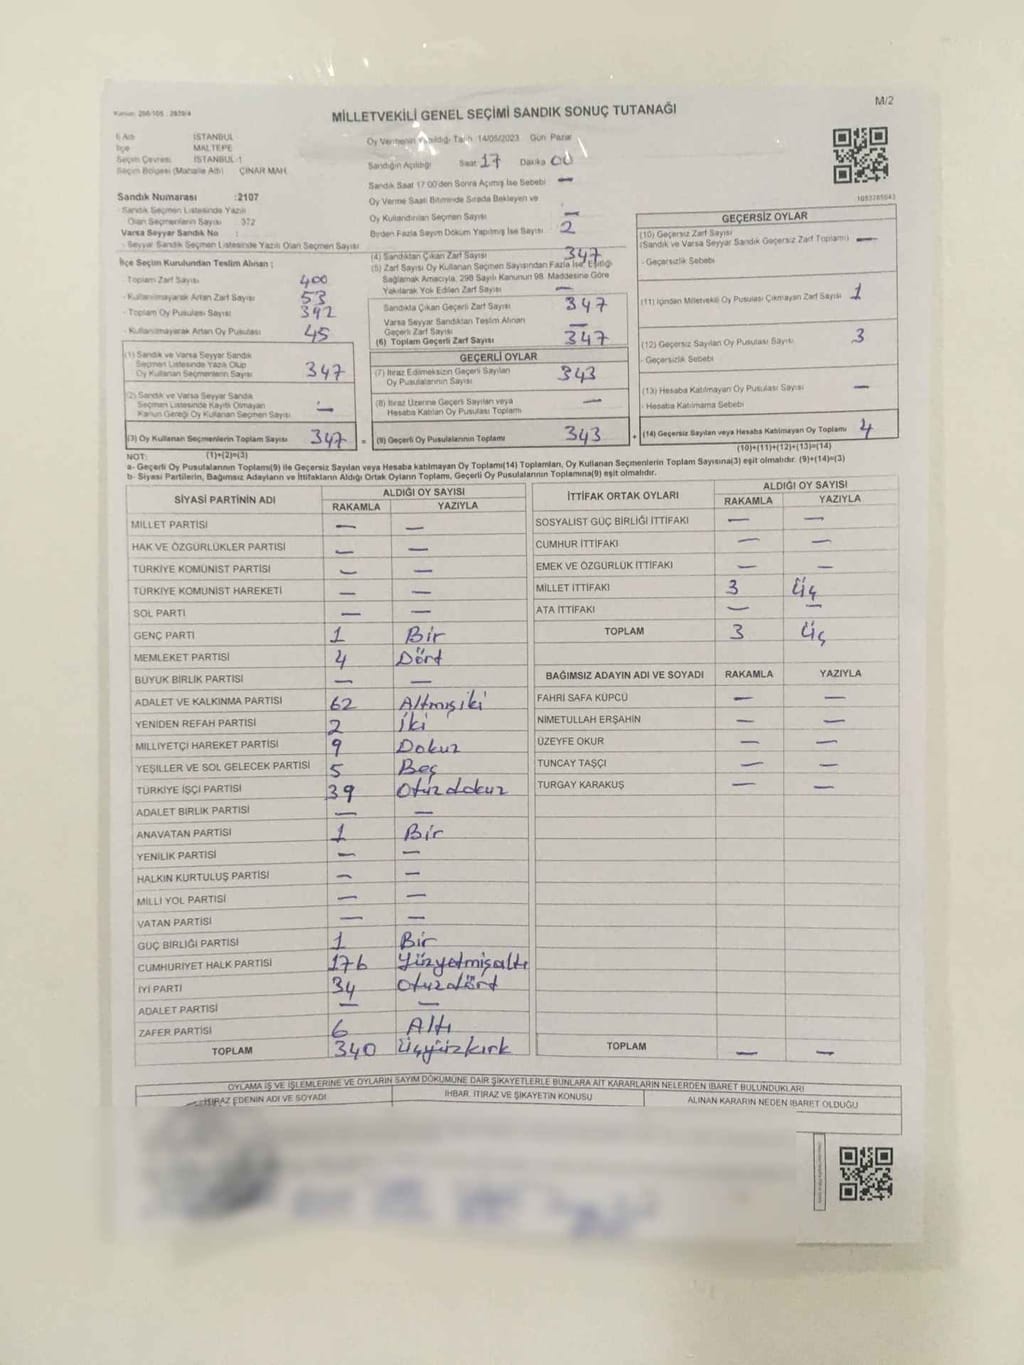 M/2
MİLLETVEKİLİ GENEL SEÇİMİ SANDIK SONUÇ TUTANAĞI
İl Adı İSTANBUL
İlçe MALTEPE
Seçim Çevresi İSTANBUL-1
Seçim Bölgesi (Mahalle Adı) ÇINAR MAH.
Sandık Numarası :2107
Sandık Seçmen Listesinde Yazılı
Olan Seçmenlerin Sayısı 372
Varsa Seyyar Sandık No :
Seyyar Sandık Seçmen Listesinde Yazılı Olan Seçmen Sayısı
Oy Vermenin Yapıldığı Tarih 14/05/2023 Gün Pazar
Sandığın Açıldığı Saat 17 Dakika 00
Sandık Saat 17:00'den Sonra Açılmış İse Sebebi —
Oy Verme Saati Bitiminde Sırada Bekleyen ve
Oy Kullandırılan Seçmen Sayısı —
Birden Fazla Sayım Döküm Yapılmış İse Sayısı 2
İlçe Seçim Kurulundan Teslim Alınan :
Toplam Zarf Sayısı 400
- Kullanılmayarak Artan Zarf Sayısı 53
- Toplam Oy Pusulası Sayısı 392
- Kullanılmayarak Artan Oy Pusulası 45
(1) Sandık ve Varsa Seyyar Sandık
Seçmen Listesinde Yazılı Olup
Oy Kullanan Seçmenlerin Sayısı 347
(2) Sandık ve Varsa Seyyar Sandık
Seçmen Listesinde Kayıtlı Olmayan
Kanun Gereği Oy Kullanan Seçmen Sayısı —
(3) Oy Kullanan Seçmenlerin Toplam Sayısı 347
(1)+(2)=(3)
(4) Sandıktan Çıkan Zarf Sayısı 347
(5) Zarf Sayısı Oy Kullanan Seçmen Sayısından Fazla İse, Eşitliği
Sağlamak Amacıyla, 298 Sayılı Kanunun 98. Maddesine Göre
Yakılarak Yok Edilen Zarf Sayısı —
Sandıkta Çıkan Geçerli Zarf Sayısı 347
Varsa Seyyar Sandıktan Teslim Alınan
Geçerli Zarf Sayısı —
(6) Toplam Geçerli Zarf Sayısı 347
GEÇERLİ OYLAR
(7) İtiraz Edilmeksizin Geçerli Sayılan
Oy Pusulalarının Sayısı 343
(8) İtiraz Üzerine Geçerli Sayılan veya
Hesaba Katılan Oy Pusulası Toplamı —
= (9) Geçerli Oy Pusulalarının Toplamı 343
GEÇERSİZ OYLAR
(10) Geçersiz Zarf Sayısı
(Sandık ve Varsa Seyyar Sandık Geçersiz Zarf Toplamı) —
- Geçersizlik Sebebi
(11) İçinden Milletvekili Oy Pusulası Çıkmayan Zarf Sayısı 1
(12) Geçersiz Sayılan Oy Pusulası Sayısı 3
- Geçersizlik Sebebi
(13) Hesaba Katılmayan Oy Pusulası Sayısı —
- Hesaba Katılmama Sebebi
+ (14) Geçersiz Sayılan veya Hesaba Katılmayan Oy Toplamı 4
(10)+(11)+(12)+(13)=(14)
NOT:
a- Geçerli Oy Pusulalarının Toplamı(9) ile Geçersiz Sayılan veya Hesaba katılmayan Oy Toplamı(14) Toplamları, Oy Kullanan Seçmenlerin Toplam Sayısına(3) eşit olmalıdır. (9)+(14)=(3)
b- Siyasi Partilerin, Bağımsız Adayların ve İttifakların Aldığı Ortak Oyların Toplamı, Geçerli Oy Pusulalarının Toplamına(9) eşit olmalıdır.
SİYASİ PARTİNİN ADI ALDIĞI OY SAYISI
RAKAMLA YAZIYLA
MİLLET PARTİSİ — —
HAK VE ÖZGÜRLÜKLER PARTİSİ — —
TÜRKİYE KOMÜNİST PARTİSİ — —
TÜRKİYE KOMÜNİST HAREKETİ — —
SOL PARTİ — —
GENÇ PARTİ 1 Bir
MEMLEKET PARTİSİ 4 Dört
BÜYÜK BİRLİK PARTİSİ — —
ADALET VE KALKINMA PARTİSİ 62 Altmışiki
YENİDEN REFAH PARTİSİ 2 İki
MİLLİYETÇİ HAREKET PARTİSİ 9 Dokuz
YEŞİLLER VE SOL GELECEK PARTİSİ 5 Beş
TÜRKİYE İŞÇİ PARTİSİ 39 Otuzdokuz
ADALET BİRLİK PARTİSİ — —
ANAVATAN PARTİSİ 1 Bir
YENİLİK PARTİSİ — —
HALKIN KURTULUŞ PARTİSİ — —
MİLLİ YOL PARTİSİ — —
VATAN PARTİSİ — —
GÜÇ BİRLİĞİ PARTİSİ 1 Bir
CUMHURİYET HALK PARTİSİ 176 Yüzyetmişaltı
İYİ PARTİ 34 Otuzdört
ADALET PARTİSİ — —
ZAFER PARTİSİ 6 Altı
TOPLAM 340 Üçyüzkırk
İTTİFAK ORTAK OYLARI ALDIĞI OY SAYISI
RAKAMLA YAZIYLA
SOSYALİST GÜÇ BİRLİĞİ İTTİFAKI — —
CUMHUR İTTİFAKI — —
EMEK VE ÖZGÜRLÜK İTTİFAKI — —
MİLLET İTTİFAKI 3 Üç
ATA İTTİFAKI — —
TOPLAM 3 Üç
BAĞIMSIZ ADAYIN ADI VE SOYADI RAKAMLA YAZIYLA
FAHRİ SAFA KÜPCÜ — —
NİMETULLAH ERŞAHİN — —
ÜZEYFE OKUR — —
TUNCAY TAŞÇI — —
TURGAY KARAKUŞ — —
TOPLAM — —
OYLAMA İŞ VE İŞLEMLERİNE VE OYLARIN SAYIM DÖKÜMÜNE DAİR ŞİKAYETLERLE BUNLARA AİT KARARLARIN NELERDEN İBARET BULUNDUKLARI
İTİRAZ EDENİN ADI VE SOYADI İHBAR, İTİRAZ VE ŞİKAYETİN KONUSU ALINAN KARARIN NEDEN İBARET OLDUĞU